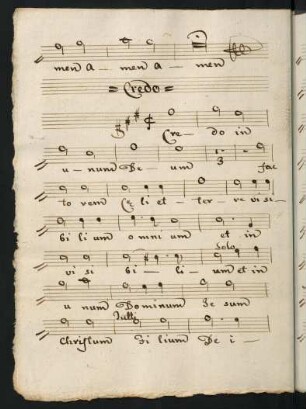 men A - men A - men
= Credo =
Cre - do in
u - num De - um fac
to rem Cæli et - ter - re visi -
bi lium omnium et in
Solo
vi si bi - li - um et in
u num Dominum Je sum
Tutti
Christum filium De i -